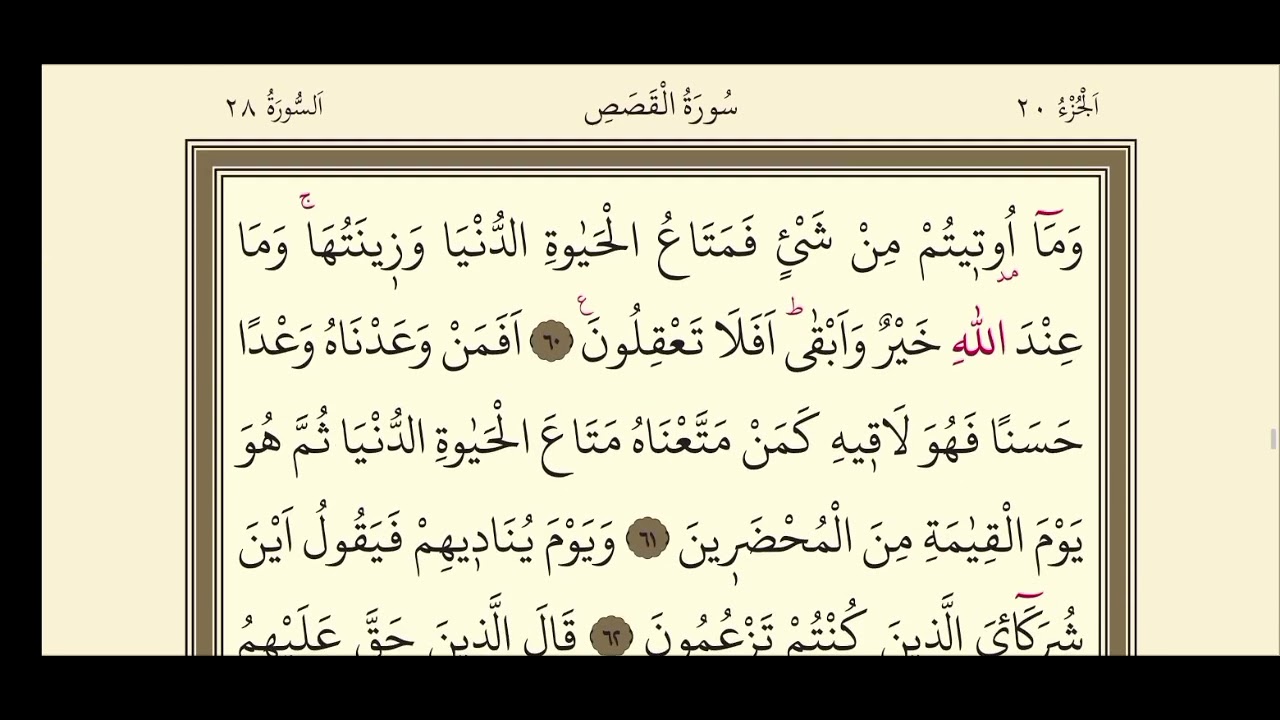 اَلْجُزْءُ ٢٠ سُورَةُ الْقَصَصِ اَلسُّورَةُ ٢٨
وَمَٓا اُو۫ت۪يتُمْ مِنْ شَيْءٍ فَمَتَاعُ الْحَيٰوةِ الدُّنْيَا وَز۪ينَتُهَاۚ وَمَا
عِنْدَ اللّٰهِ خَيْرٌ وَاَبْقٰىۜ اَفَلَا تَعْقِلُونَ۟ ٦٠ اَفَمَنْ وَعَدْنَاهُ وَعْدًا
حَسَنًا فَهُوَ لَاق۪يهِ كَمَنْ مَتَّعْنَاهُ مَتَاعَ الْحَيٰوةِ الدُّنْيَا ثُمَّ هُوَ
يَوْمَ الْقِيٰمَةِ مِنَ الْمُحْضَر۪ينَ ٦١ وَيَوْمَ يُنَاد۪يهِمْ فَيَقُولُ اَيْنَ
شُرَكَٓائِيَ الَّذ۪ينَ كُنْتُمْ تَزْعُمُونَ ٦٢ قَالَ الَّذ۪ينَ حَقَّ عَلَيْهِمُ